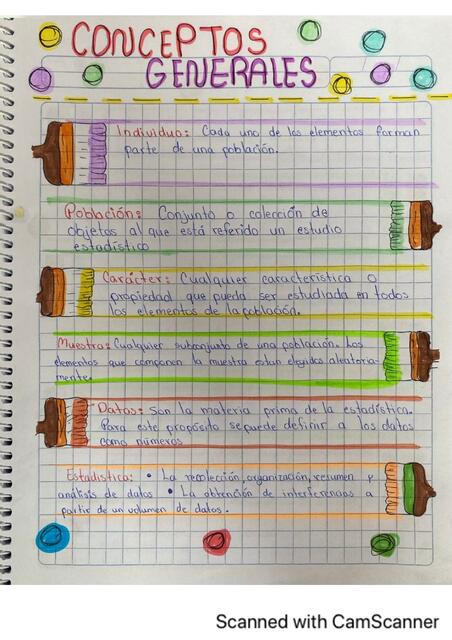 CONCEPTOS
GENERALES
Individuo: Cada uno de los elementos forman
parte de una población.
Población: Conjunto o colección de
objetos al que está referido un estudio
estadístico
Carácter: Cualquier característica o
propiedad que pueda ser estudiada en todos
los elementos de la población.
Muestra: Cualquier subconjunto de una población. Los
elementos que componen la muestra estan elegidos aleatoria-
mente.
Datos: Son la materia prima de la estadística.
Para este propósito se puede definir a los datos
como números
Estadistica: • La recolección, organización, resumen y
análisis de datos • La obtención de interferencias a
partir de un volumen de datos.
Scanned with CamScanner